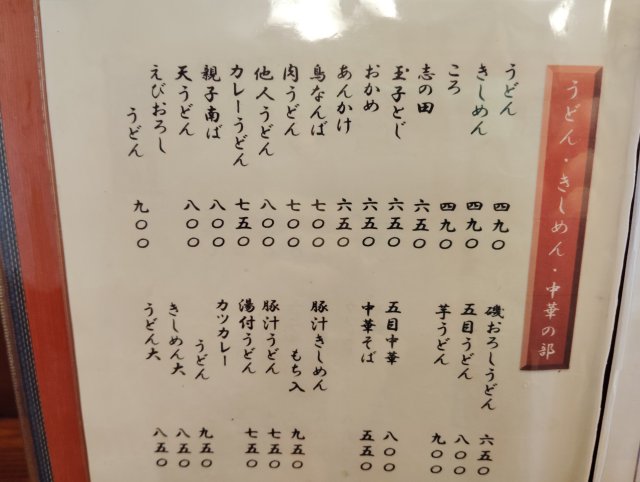 うどん・きしめん・中華の部
うどん 四九〇
きしめん 四九〇
ころ 四九〇
志の田 六五〇
玉子とじ 六五〇
おかめ 六五〇
あんかけ 六五〇
鳥なんば 七〇〇
肉うどん 七〇〇
他人うどん 八〇〇
カレーうどん 七五〇
親子南ば 八〇〇
天うどん 八〇〇
えびおろし
うどん 九〇〇
磯おろしうどん 六五〇
五目うどん 八〇〇
芋うどん 九〇〇
五目中華 八〇〇
中華そば 五五〇
豚汁きしめん
もち入 九五〇
豚汁うどん 七五〇
湯付うどん 七五〇
カツカレー
うどん 九五〇
きしめん大 八五〇
うどん大 八五〇